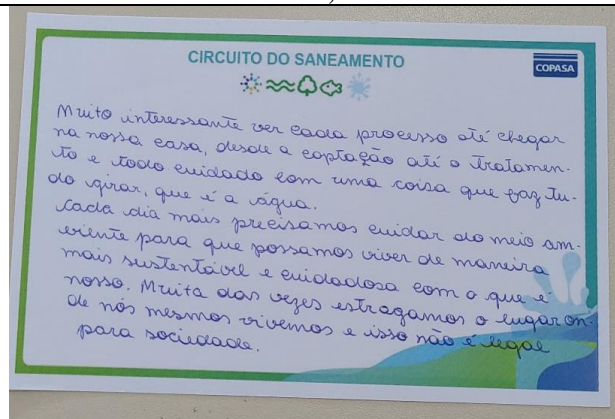 CIRCUITO DO SANEAMENTO
COPASA
Muito interessante ver cada processo até chegar
na nossa casa, desde a captação até o tratamen-
to e todo cuidado com uma coisa que faz tu-
do girar, que é a água.
Cada dia mais precisamos cuidar do meio am-
biente para que possamos viver de maneira
mais sustentável e cuidadosa com o que é
nosso. Muita das vezes estragamos o lugar on-
de nós mesmos vivemos e isso não é legal
para sociedade.